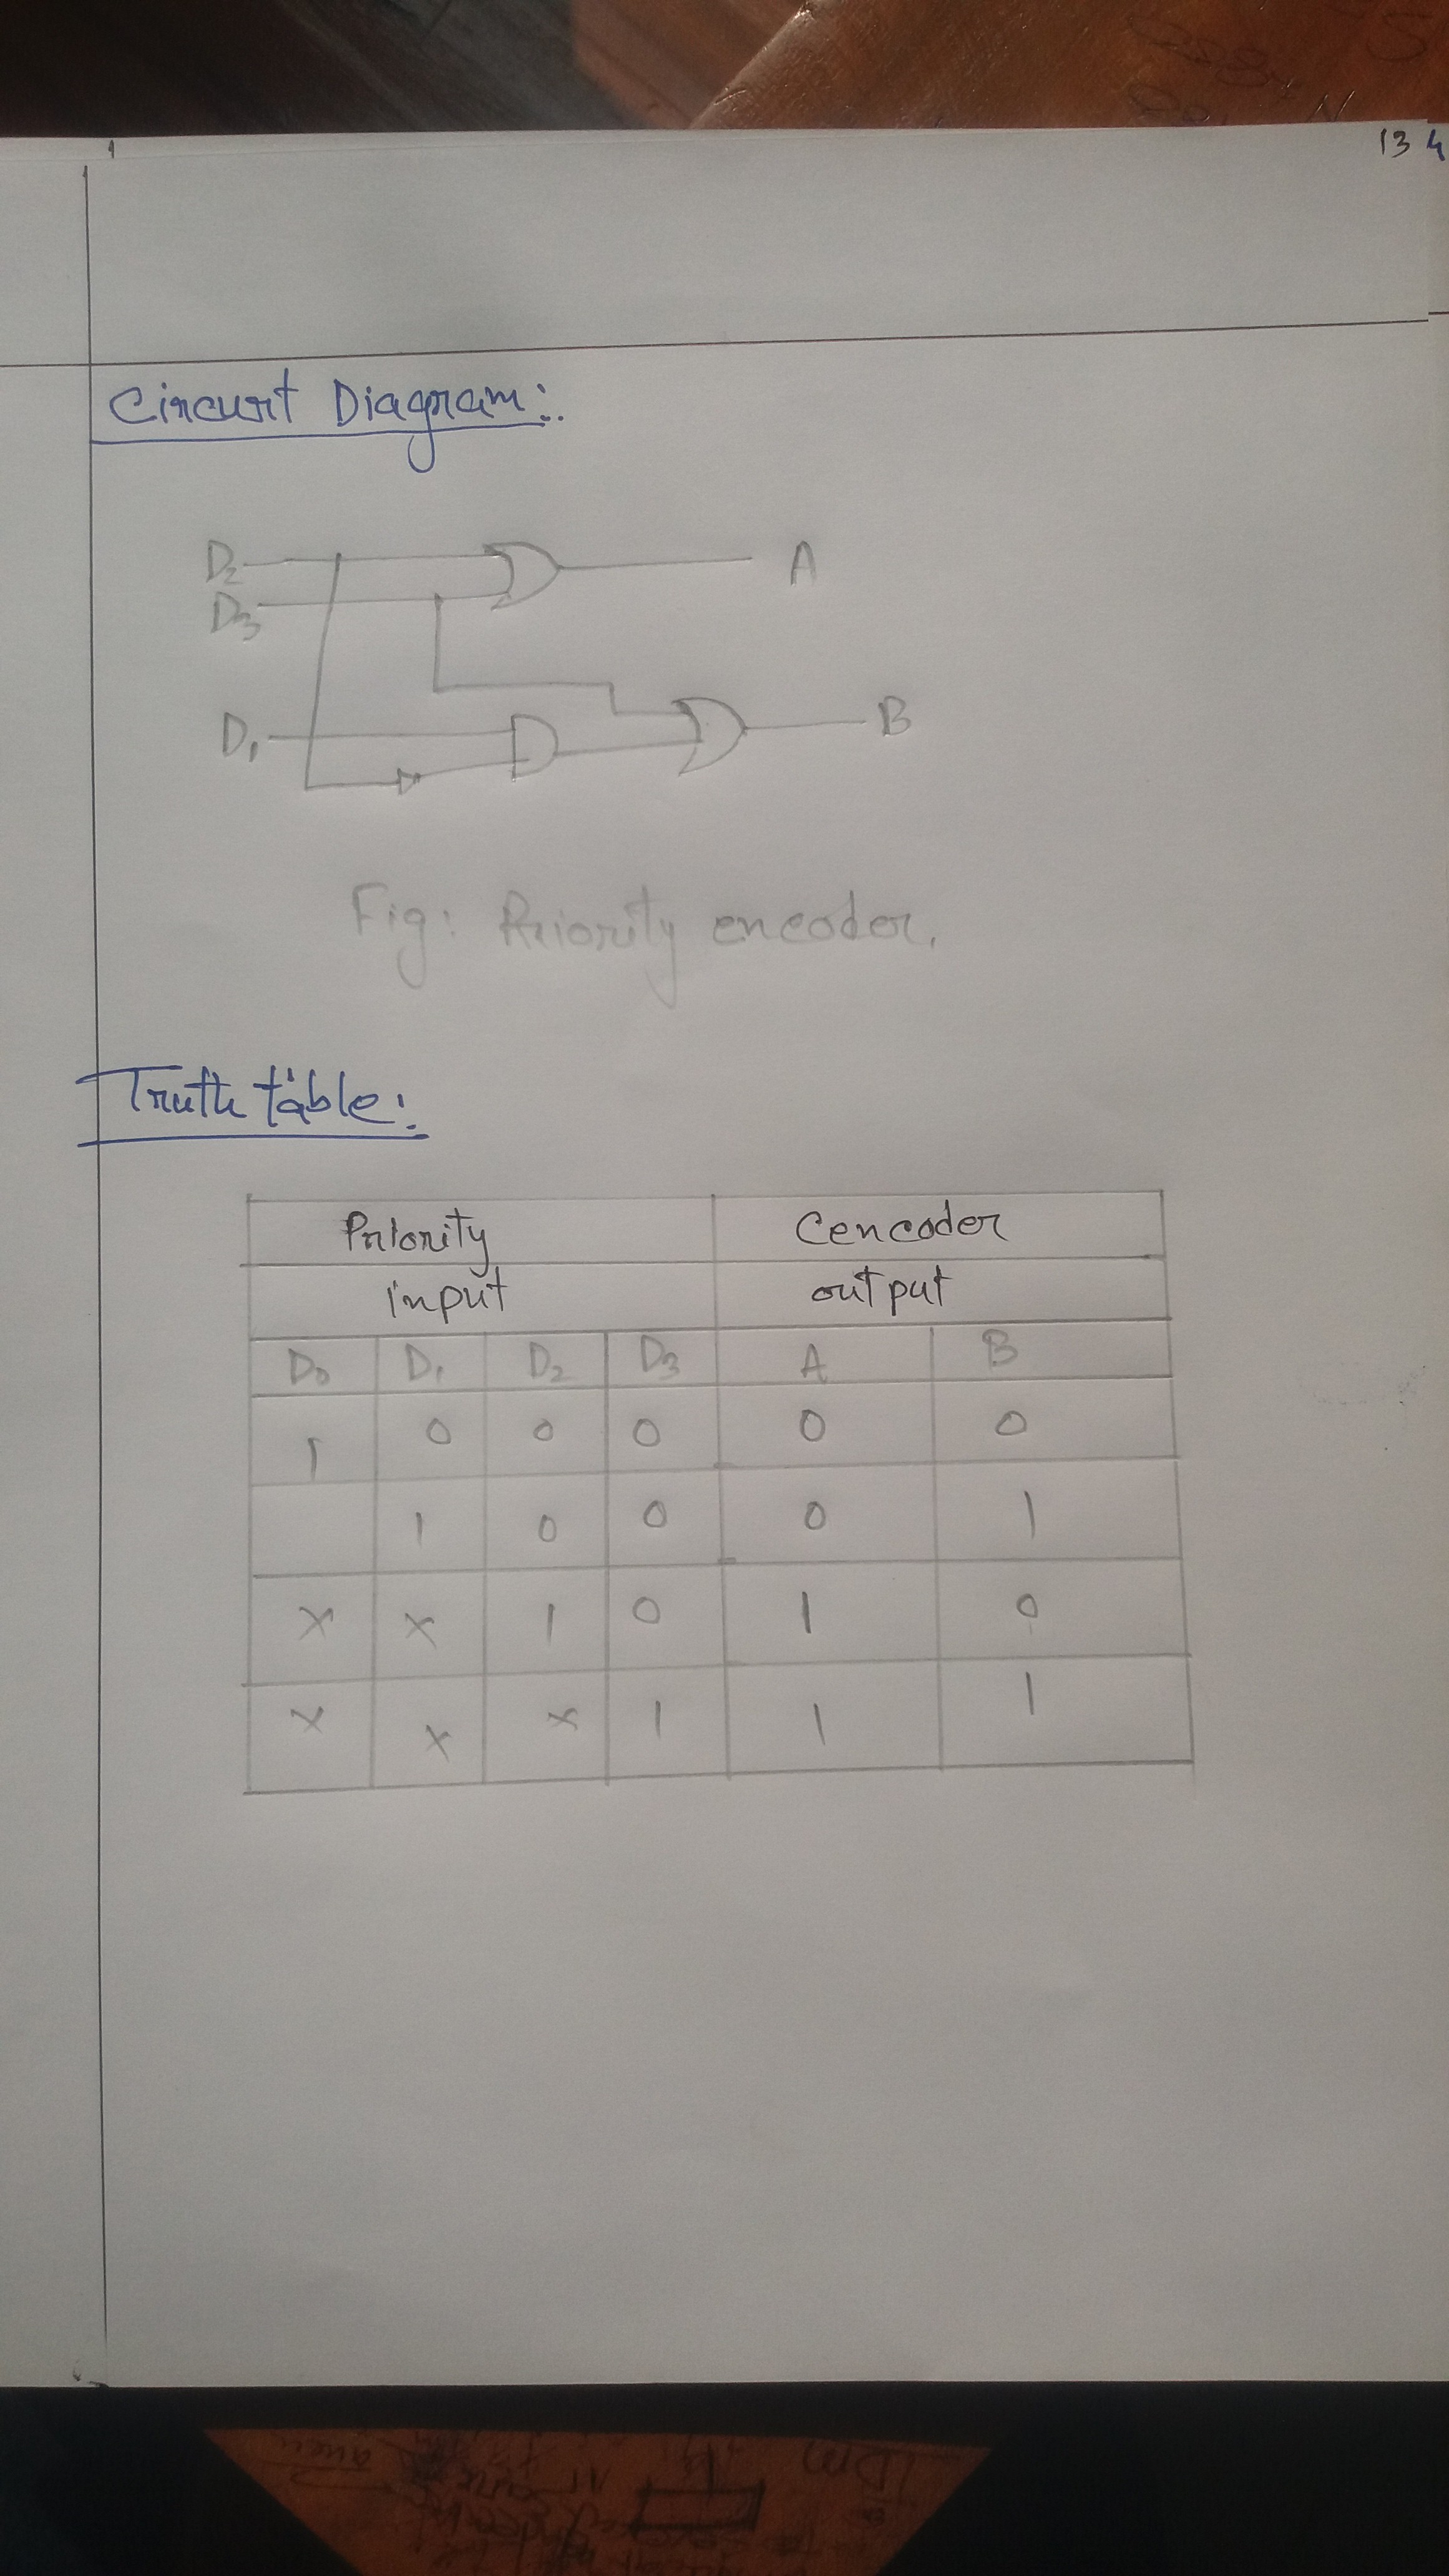 13 4
Circuit Diagram:
D2
D3
A
D1
B
Fig: Priority encoder.
Truth table:
Priority Cencoder
input output
D0 D1 D2 D3 A B
1 0 0 0 0 0
1 0 0 0 1
x x 1 0 1 0
x x x 1 1 1